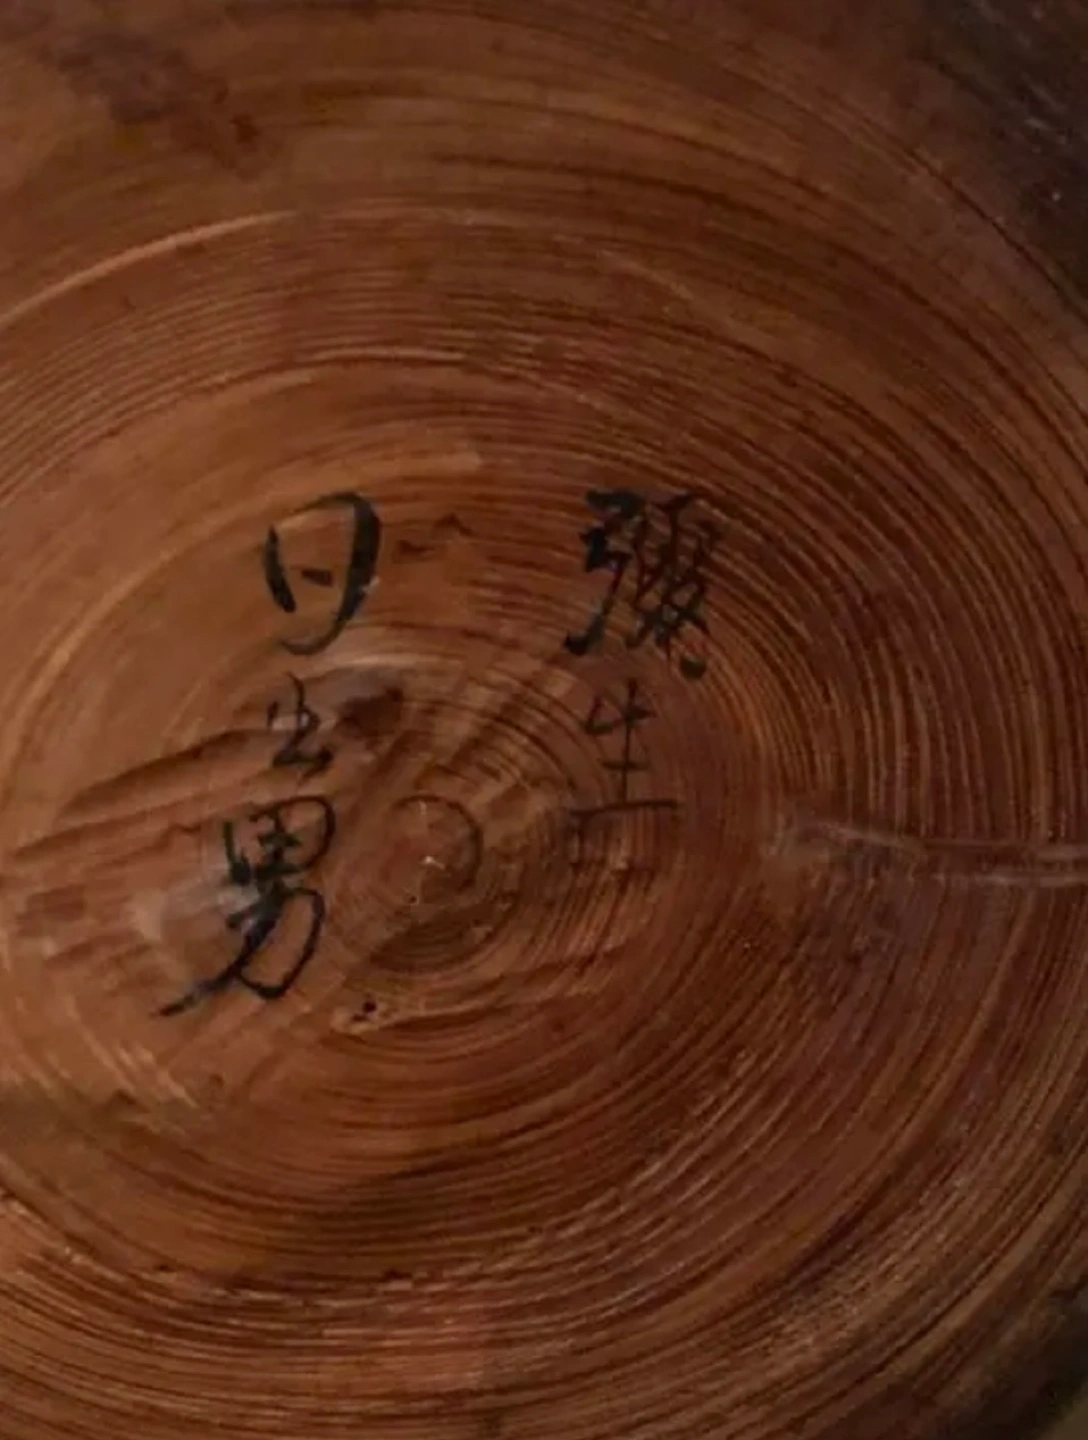 彌生
日出男